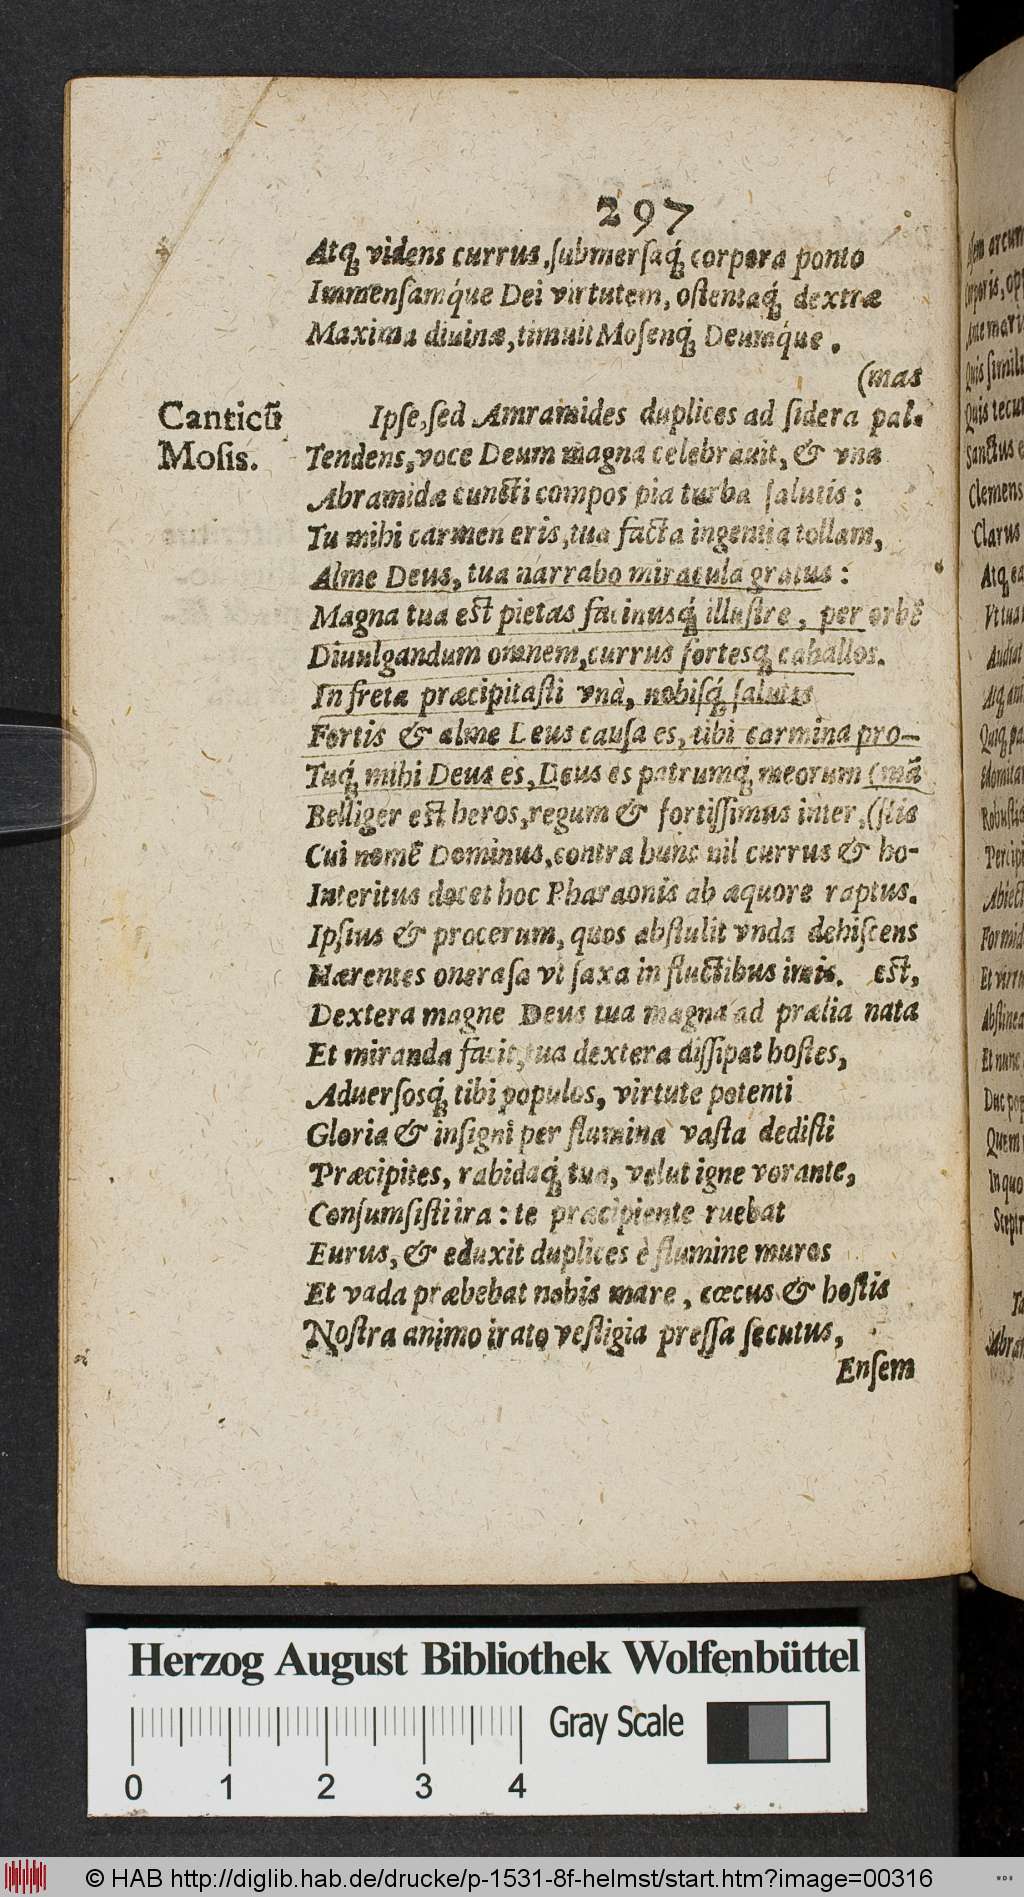 297
Atq́; videns currus, ſubmerſaq́; corpora ponto
Immenſamq́ue Dei virtutem, oſtentaq́; dextræ
Maxima diuinæ, timuit Moſenq́; Deumq́ue.
(mas
Canticũ
Moſis.
Ipſe, ſed Amramides duplices ad ſidera pal-
Tendens, voce Deum magna celebrauit, & vna
Abramidæ cuncti compos pia turba ſalutis:
Tu mihi carmen eris, tua facta ingentia tollam,
Alme Deus, tua narrabo miracula gratus:
Magna tua est pietas facinusq́; illuſtre, per orbẽ
Diuulgandum omnem, currus fortesq́; caballos.
In freta præcipitaſti vnà, nobiſq́; ſalutis
Fortis & alme Deus cauſa es, tibi carmina pro-
Tuq́; mihi Deus es, Deus es patrumq́; meorum (mã
Belliger est heros, regum & fortiſſimus inter, (ſtis
Cui nomẽ Dominus, contra hunc nil currus & ho-
Interitus docet hoc Pharaonis ab æquore raptus.
Ipſius & procerum, quos abſtulit vnda dehiſcens
Hærentes oneroſa vt ſaxa in fluctibus imis. est,
Dextera magne Deus tua magna ad prælia nata
Et miranda facit, tua dextera diſſipat hoſtes,
Aduerſosq́; tibi populos, virtute potenti
Gloria & inſigni per flumina vaſta dediſti
Præcipites, rabidaq́; tua, velut igne vorante,
Conſumſiſti ira: te præcipiente ruebat
Eurus, & eduxit duplices è flumine muros
Et vada præbebat nobis mare, cœcus & hoſtis
Noſtra animo irato veſtigia preſſa ſecutus,
Enſem
Herzog August Bibliothek Wolfenbüttel
Gray Scale
0 1 2 3 4
© HAB http://diglib.hab.de/drucke/p-1531-8f-helmst/start.htm?image=00316